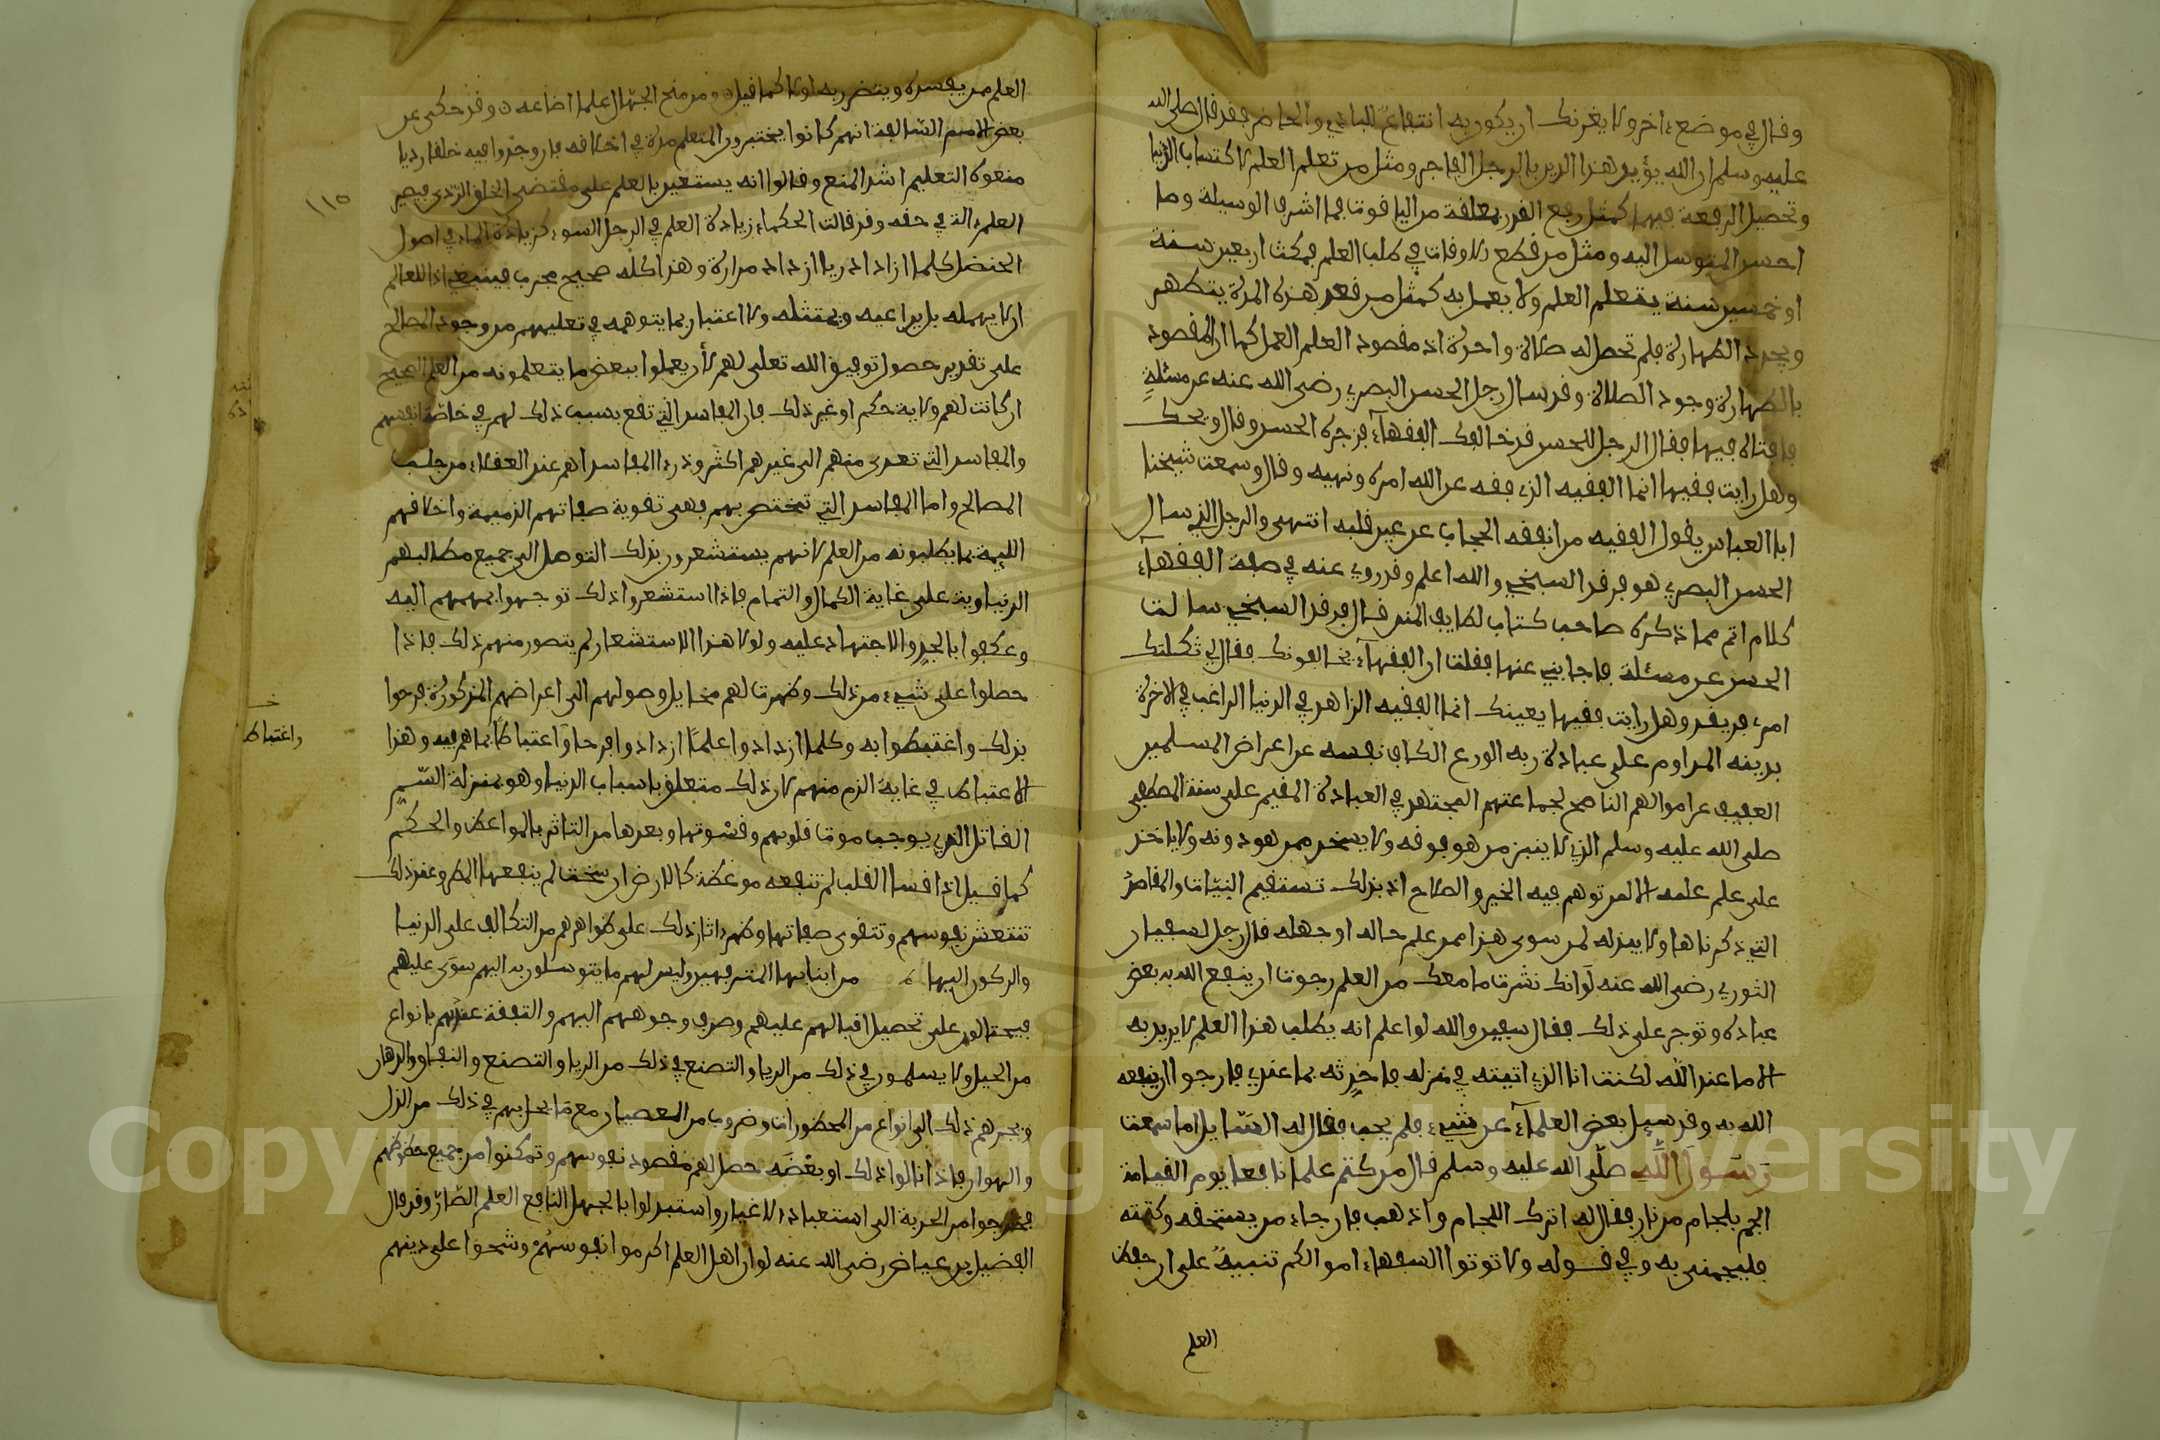 وقال في موضع ءاخر ولا يغرنك ان يكون به انتفاع للبادي والحاضر فقد قال صلى الله
عليه وسلم ان الله يؤيد هذا الدين بالرجل الفاجر ومثل من تعلم العلم لاكتساب الدنيا
وتحصيل الرفعة فيها كمثل رفع القذر بملعقة من الياقوت فما اشرف الوسيلة وما
اخس المتوسل اليه ومثل من قطع الاوقات في طلب العلم فمكث اربعين سنة
او خمسين سنة يتعلم العلم ولا يعمل به كمثل من قعد هذه المدة يتطهر
ويجدد الطهارة فلم تحصل له صلاة واحدة اذ مقصود العلم العمل كما ان المقصود
بالطهارة وجود الصلاة وقد سال رجل الحسن البصري رضى الله عنه عن مسئلة
فافتاه فيها فقال الرجل للحسن قد خالفك الفقهاء فزجره الحسن وقال ويحك
وهل رايت فقيها انما الفقيه الذي فقه عن الله امره ونهيه وقال وسمعت شيخنا
ابا العباس يقول الفقيه من انفقه الحجاب عن عين قلبه انتهى والرجل الذي سال
الحسن البصري هو فرقد السبخي والله اعلم وقد روي عنه في صفة الفقهاء
كلام اتم مما ذكره صاحب كتاب لطايف المنن قال فرقد السبخي سالت
الحسن عن مسئلة فاجابني عنها فقلت ان الفقهاء يخالفونك فقال لي ثكلتك
امك فريقد وهل رايت فقيها بعينك انما الفقيه الزاهد في الدنيا الراغب في الاخرة
بدينه المداوم على عبادة ربه الورع الكاف نفسه عن اعراض المسلمين
العفيف عن اموالهم الناصح لجماعتهم المجتهد في العبادة المقيم على سنة المصطفى
صلى الله عليه وسلم الذي لا ينبذ من هو فوقه ولا يسخر ممن هو دونه ولا ياخذ
على علم علمه الا لمن توهم فيه الخير والصلاح اذ بذلك تستقيم النيات والمقاصد
التي ذكرناها ولا يبذله لمن سوى هذا ممن علم حاله او جهله قال رجل لسفيان
الثوري رضى الله عنه لو انك نشرت ما معك من العلم رجوت ان ينفع الله به بعض
عباده وتوجر على ذلك فقال سفين والله لو اعلم انه يطلب هذا العلم لا يريد به
الا ما عند الله لكنت انا الذي اتيته في منزله فاحدثه بما عندي فارجوا ان ينفعه
الله به وقد سيل بعض العلماء عن شيء فلم يجب فقال له السايل اما سمعت
رسول الله صلى الله عليه وسلم قال من كتم علما نافعا يوم القيامة
الجم بلجام من نار فقال له اترك اللجام واذهب فان جاء من يستحقه وكتمته
فليلجمني به وفي قوله ولا توتوا السفهاء اموالكم تنبيه على ان حفظ
العلم
العلم ممن يفسده ويتضرر به اولى كما قيل ومن منح الجهال علما اضاعه وقد حكى عن
بعض الامم السالفة انهم كانوا يختبرون المتعلم مدة في اخلاقه فان وجدوا فيه خلقا رديا
منعوه التعليم اشد المنع وقالوا انه يستعين بالعلم على مقتضى الخلق الردى فيصير
العلم ءالة في حقه وقد قالت الحكماء زيادة العلم في الرجل السوء كزيادة الماء في اصول
الحنضل كلما ازداد ريا ازداد مرارة وهذا كله صحيح مجرب فينبغي اذا للعالم
ان لا يهمله بل يراعيه ويمتثله ولا اعتبار بما يتوهمه في تعليمهم من وجود المصالح
على تقدير حصول توفيق الله تعلى لهم لأن يعملوا ببعض ما يتعلمونه من العلم الصحيح
ان كانت لهم ولاية حكم او غير ذلك فان المفاسد التي تقع بسبب ذلك لهم في خاصة انفسهم
والمفاسد التي تعدى منهم الى غيرهم اكثر ودرء المفاسد اهم عند العقلاء من جلب
المصالح واما المفاسد التي تختص بهم فهى تقوية صفاتهم الذميمة واخلاقهم
اللئيمة بما يطلبونه من العلم لانهم يستشعرون بذلك التوصل الى جميع مطالبهم
الدنياوية على غاية الكمال والتمام فاذا استشعروا ذلك توجهوا بهممهم اليه
وعكفوا بالجد والاجتهاد عليه ولولا هذا الاستشعار لم يتصور منهم ذلك فاذا
حصلوا على شيء من ذلك وظهرت لهم مخايل وصولهم الى اغراضهم المذكورة فرحوا
بذلك واغتبطوا به وكلما ازدادوا علمًا ازدادوا فرحا واغتباطًا بما هم فيه وهذا
واغتباط
الاغتباط في غاية الذم منهم لان ذلك متعلق باسباب الدنيا وهو بمنزلة السم
القاتل الذي يوجب موت قلوبهم وقسوتها وبعدها من التاثر بالمواعظ والحكم
كما قيل اذا قسا القلب لم تنفعه موعظة كالارض ان سبخت لم ينفعها المطر وعند ذلك
تنتعش نفوسهم وتتقوى صفاتها وتظهر ءاثار ذلك على ظواهرهم من التكالب على الدنيا
والركون اليها من ابنايها المترفهين وليس لهم ما يتوسلون به اليهم سوى عليهم
فيحتالون على تحصيل اقبالهم عليهم وصرف وجوههم اليهم والتفقة عندهم بانواع
من الحيل ولا يسلمون في ذلك من الريا والتصنع في ذلك من الريا والتصنع والنفاق والدهان
ويجرهم ذلك الى انواع من المحظورات وضروب من العصيان مع ما يحل بهم في ذلك من الذل
والهوان فاذا نالوا ذلك او بعضه حصل لهم مقصود نفوسهم وتمكنوا من جميع حظوظهم
فخرجوا من الحرية الى استعباد الاغيار واستبدلوا بالجهل النافع العلم الضار وقد قال
الفضيل بن عياض رضى الله عنه لو ان اهل العلم اكرموا نفوسهم وشحوا على دينهم
١١٥